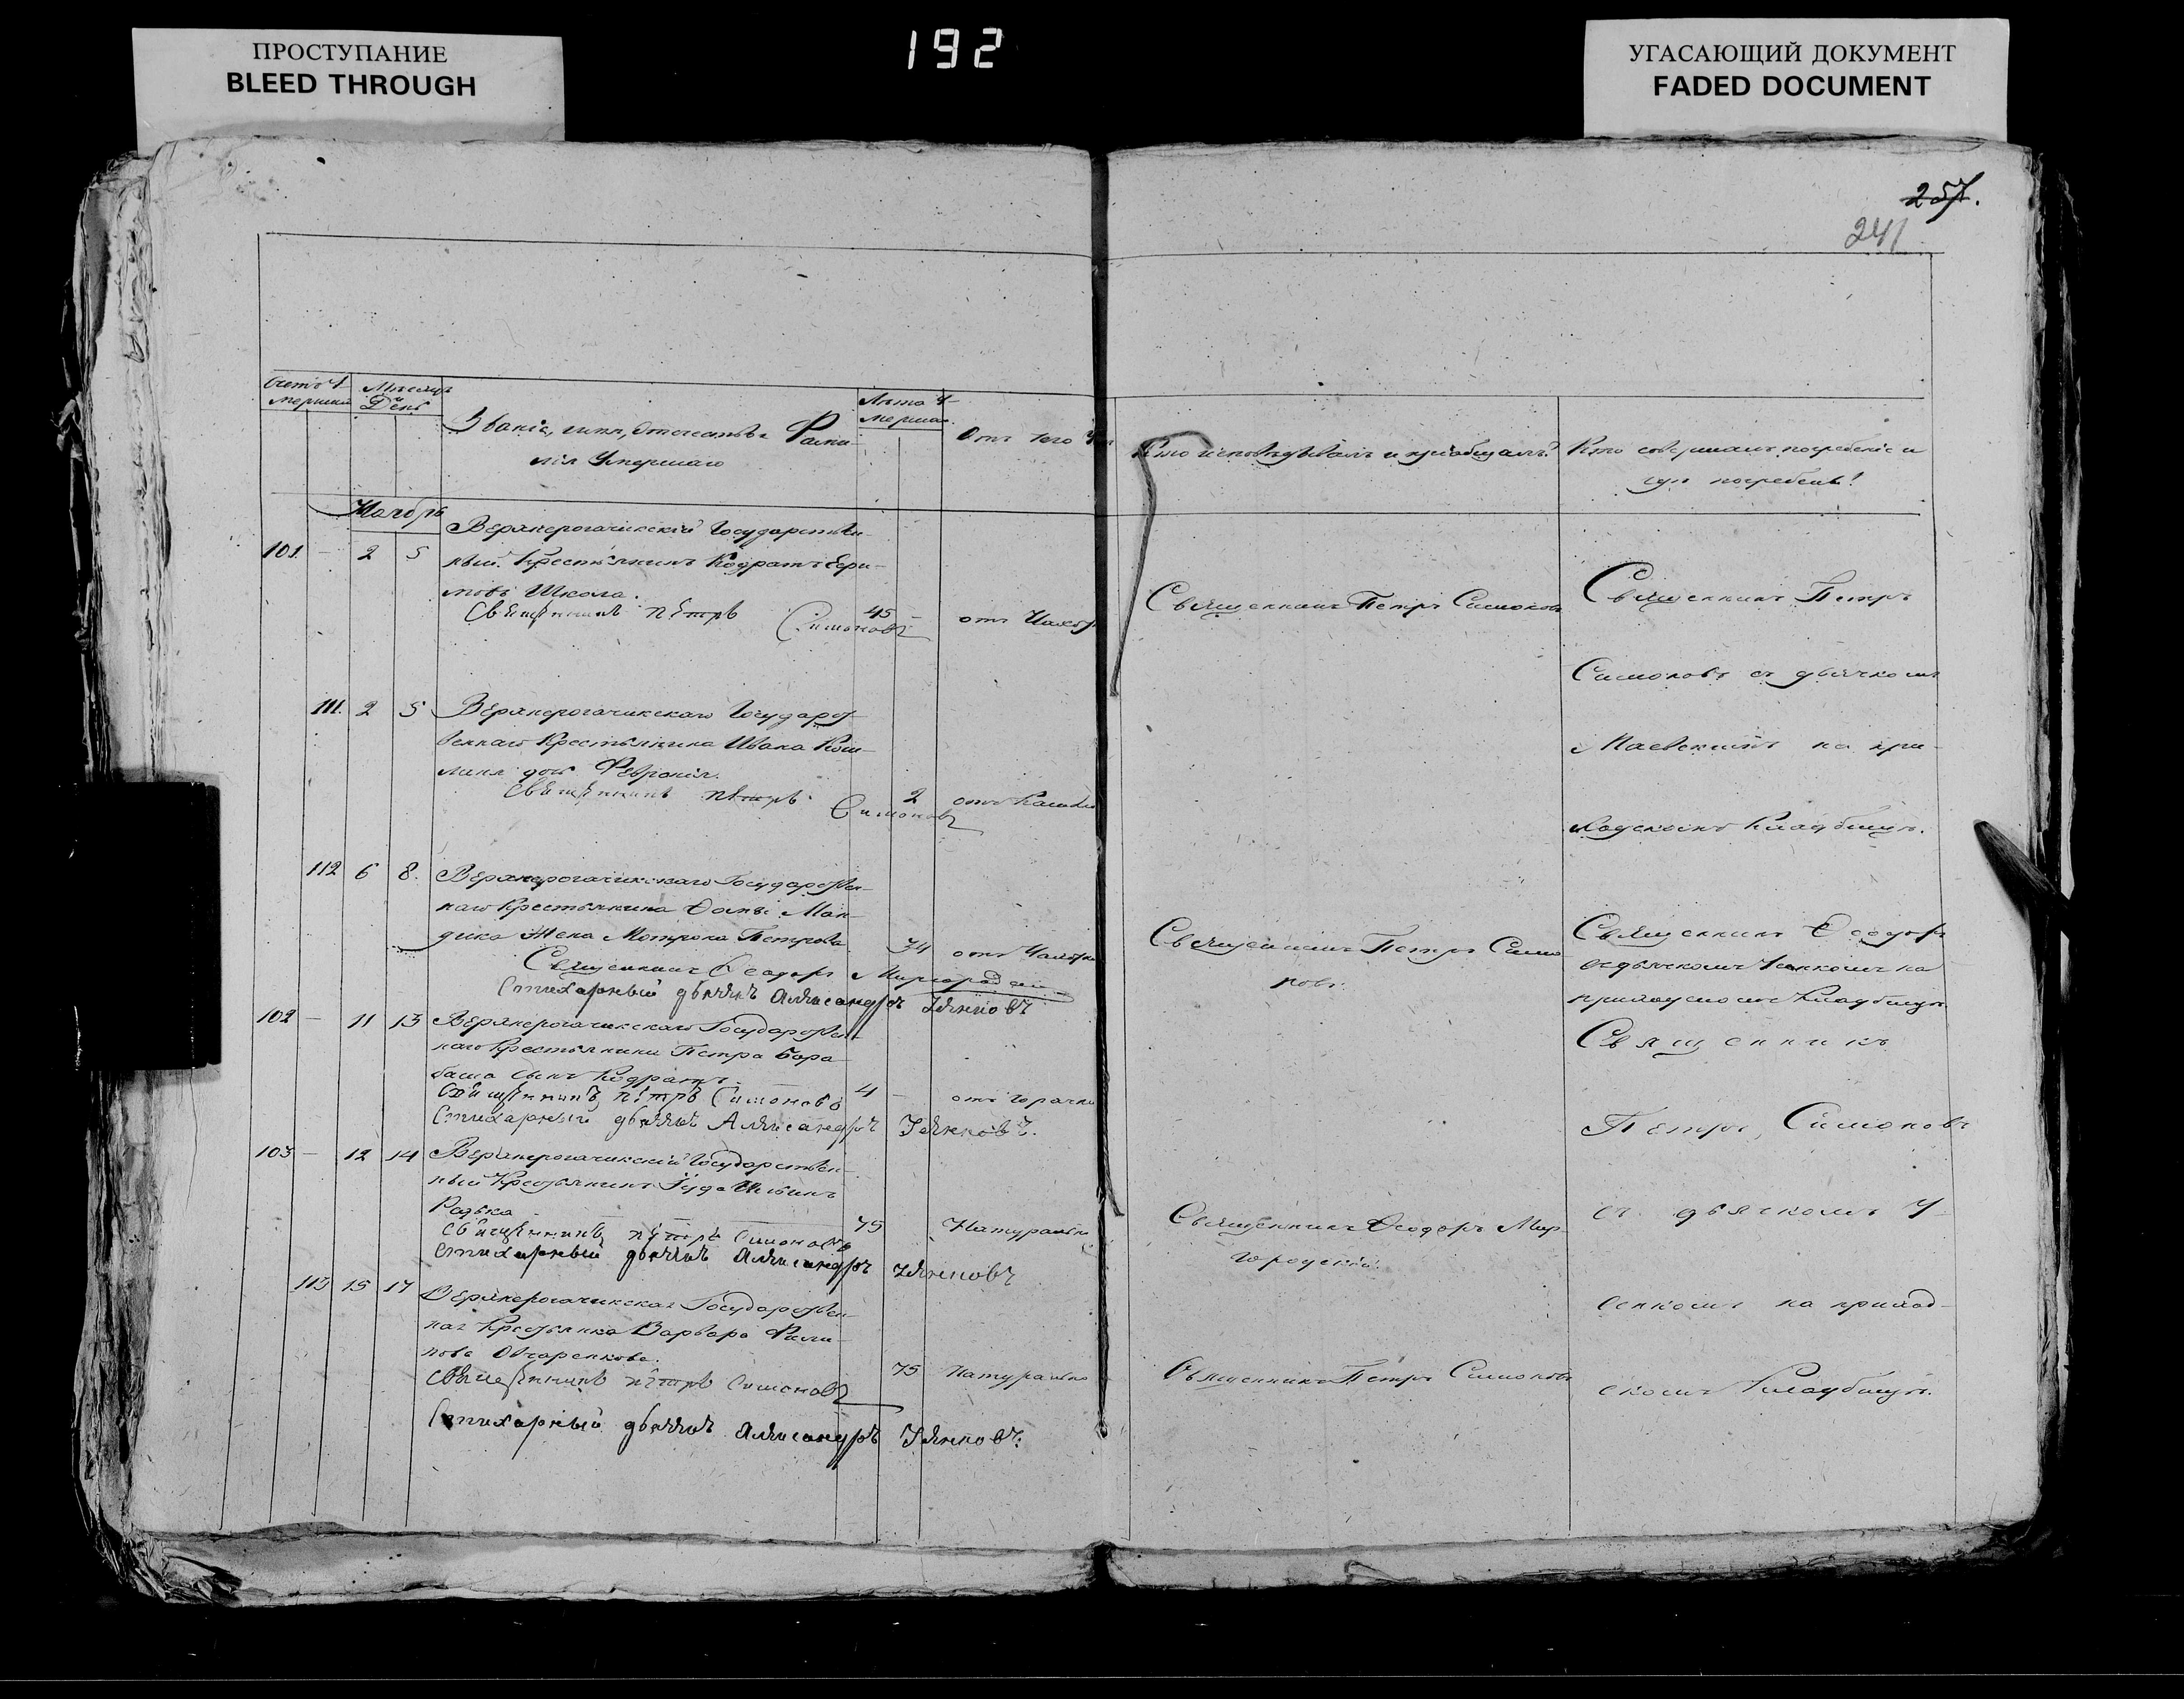 ПРОСТУПАНИЕ
BLEED THROUGH
192
УГАСАЮЩИЙ ДОКУМЕНТ
FADED DOCUMENT
257.
241
Счетъ У-
мершихъ
Мѣсяцъ
и
День
Званіе, имя, Отечество и Фами-
лія Умершаго
Лѣта У-
мершаго
Отъ чего
Кто исповѣдывалъ и пріобщалъ?
Кто совершалъ погребеніе и
гдѣ погребенъ?
Ноябрь
101. — 2 5
Верхнерогачикскій Государствен-
ный Крестьянинъ Кодратъ
Школа.
Священникъ Петръ Симоновъ
45 —
отъ
Священникъ Петръ Симоновъ
Священникъ Петръ
Симоновъ съ дьячкомъ
Маевскимъ на при-
ходскомъ Кладбищѣ.
111. 2 5
Верхнерогачикскаго Государст-
веннаго Крестьянина Ивана
дочь Февронія.
Священникъ Петръ Симоновъ
2
отъ
112 6 8.
Верхнерогачикскаго Государствен-
наго Крестьянина Ѳомы Ман-
дика Жена Мотрона Петрова
74
отъ
Священникъ Ѳеодоръ Миргородскій
Стихарный дьячекъ Александръ
Священникъ Петръ Симо-
новъ.
Священникъ Ѳеодоръ
съ дьячкомъ на
приходскомъ Кладбищѣ
102 — 11 13
Верхнерогачикскаго Государствен-
наго Крестьянина Петра Бара-
баша сынъ Кодратъ
Священникъ Петръ Симоновъ
4 —
отъ горячки
Стихарный дьячекъ Александръ
Священникъ
Петръ Симоновъ
съ дьячкомъ У-
сенкомъ на приход-
скомъ Кладбищѣ.
103 — 12 14
Верхнерогачикскій Государствен-
ный Крестьянинъ Іуда Ильинъ
Радька
75
Натурально
Священникъ Петръ Симоновъ
Стихарный дьячекъ Александръ
Священникъ Ѳеодоръ Мир-
городскій.
113 15 17
Верхнерогачикская Государствен-
ная Крестьянка Варвара Фили-
пова Овчаренкова.
75
Натурально
Священникъ Петръ Симоновъ
Стихарный дьячекъ Александръ
Священникъ Петръ Симоновъ